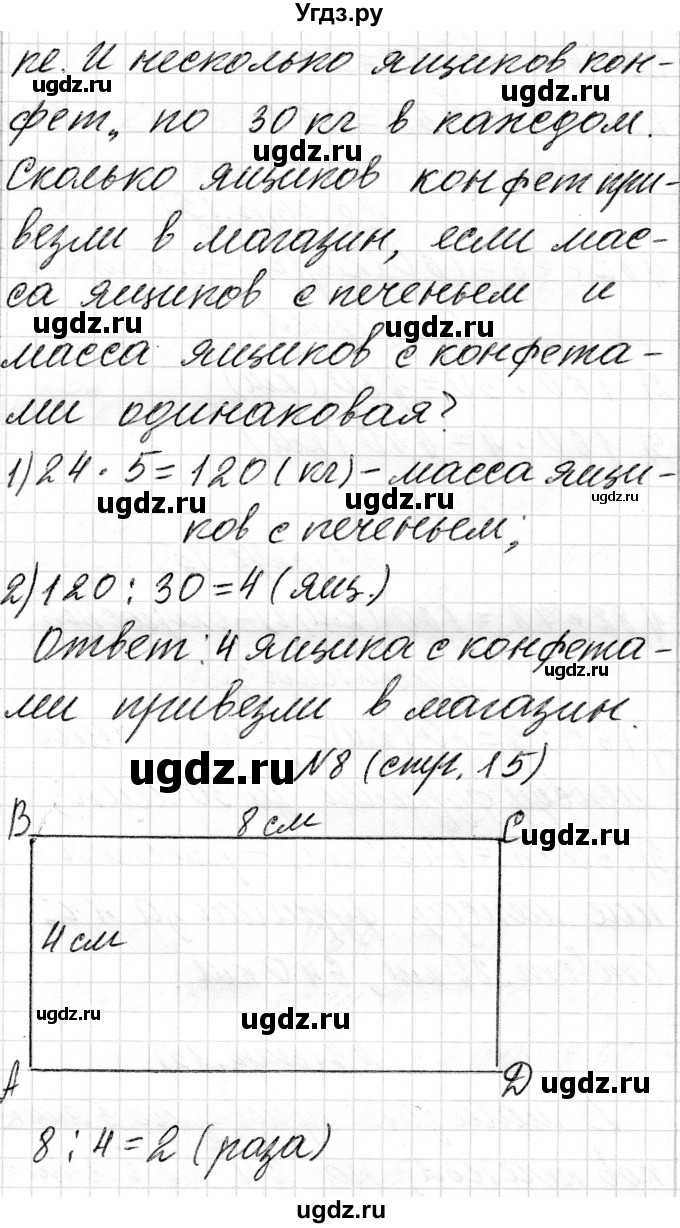 Угдз.ру
пе. И несколько ящиков кон-
ugdz.ru
фет, по 30 кг в каждом.
ugdz.ru
Сколько ящиков конфет при-
везли в магазин, если мас-
са ящиков с печеньем и
ugdz.ru ugdz.ru
масса ящиков с конфета-
ми одинаковая?
1) 24 · 5 = 120 (кг) - масса ящи-
ugdz.ru ugdz.ru ugdz.ru
ков с печеньем;
2) 120 : 30 = 4 (ящ.)
Ответ: 4 ящика с конфета-
ugdz.ru ugdz.ru
ми привезли в магазин.
ugdz.ru №8 (стр. 15)
В 8 см С ugdz.ru
4 см
ugdz.ru ugdz.ru
А D ugdz.ru
8 : 4 = 2 (раза)
ugdz.ru